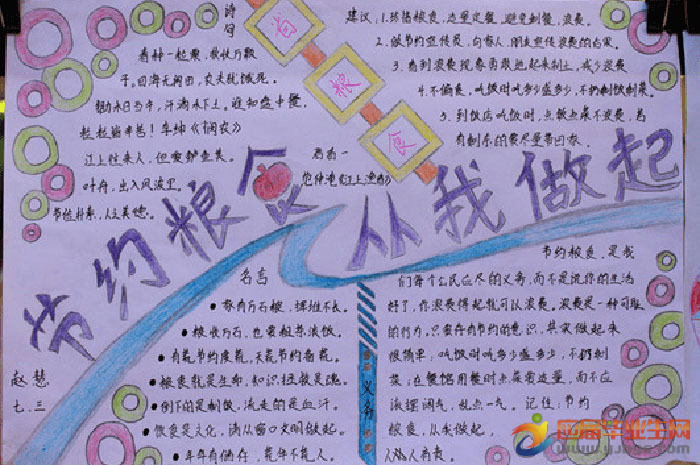 诗句
春种一粒粟,秋收万颗
子。四海无闲田,农夫犹饿死。
锄禾日当午,汗滴禾下土。谁知盘中餐,
粒粒皆辛苦!李绅《悯农》
江上往来人,但爱鲈鱼美。君看一
叶舟,出入风波里。
范仲淹《江上渔者》
节俭朴素,人之美德。
省粮食
建议:1.珍惜粮食,适量定餐,避免剩餐,浪费。
2.做节约宣传员,向家人、朋友宣传浪费的
3.看到浪费现象勇敢地起来制止,减少浪费
4.不偏食,吃饭时吃多少盛多少,不扔剩饭剩菜。
5.到饭店吃饭时,点饭点菜不浪费,若
有剩余的要尽量带回家。
节约粮食 从我做起
名言
家有万石粮,挥拍不久。
粮收万石,也要粗茶淡饭。
有花节约度花,无花节约备荒。
粮食就是生命,知识拯救灵魂。
倒下的是剩饭,流走的是血汗。
饮食是文化,满从窗口文明做起。
年年有储存,荒年不荒人。
赵慧
七.三
义务
节约粮食,是我
们每个公民应尽的义务,而不是说你的生活
好了,你浪费得起就可以浪费。浪费是一种可耻
的行为,只要存有节约的意识,其实做起来
很简单:吃饭时吃多少盛多少,不扔剩
菜;在餐馆用餐时点菜要适量,而不应
该摆阔气,乱点一气。记住:节约
粮食,从我做起,
人人有责。
四届毕业生网
www.yjbys.com